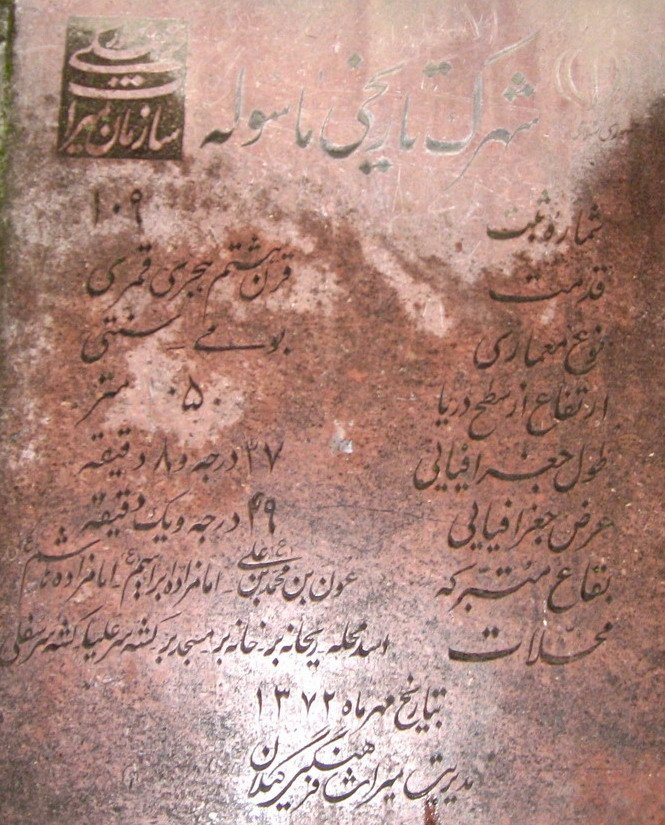 شهرک تاریخی ماسوله
سازمان میراث ملی
شماره ثبت ۱۰۹
قدمت قرن هشتم هجری قمری
نوع معماری بومی _ سنتی
ارتفاع از سطح دریا ۱۰۵۰ متر
طول جغرافیایی ۳۷ درجه و ۸ دقیقه
عرض جغرافیایی ۴۹ درجه و یک دقیقه
بقاع متبرکه عون بن محمد بن علی ع _ امامزاده ابراهیم ع _ امامزاده هاشم ع
محلات اسد محله _ ریحانه بر _ خانه بر _ مسجد بر _ کشه سر علیا _ کشه سر سفلی
بتاریخ مهر ماه ۱۳۷۲
مدیریت میراث فرهنگی گیلان